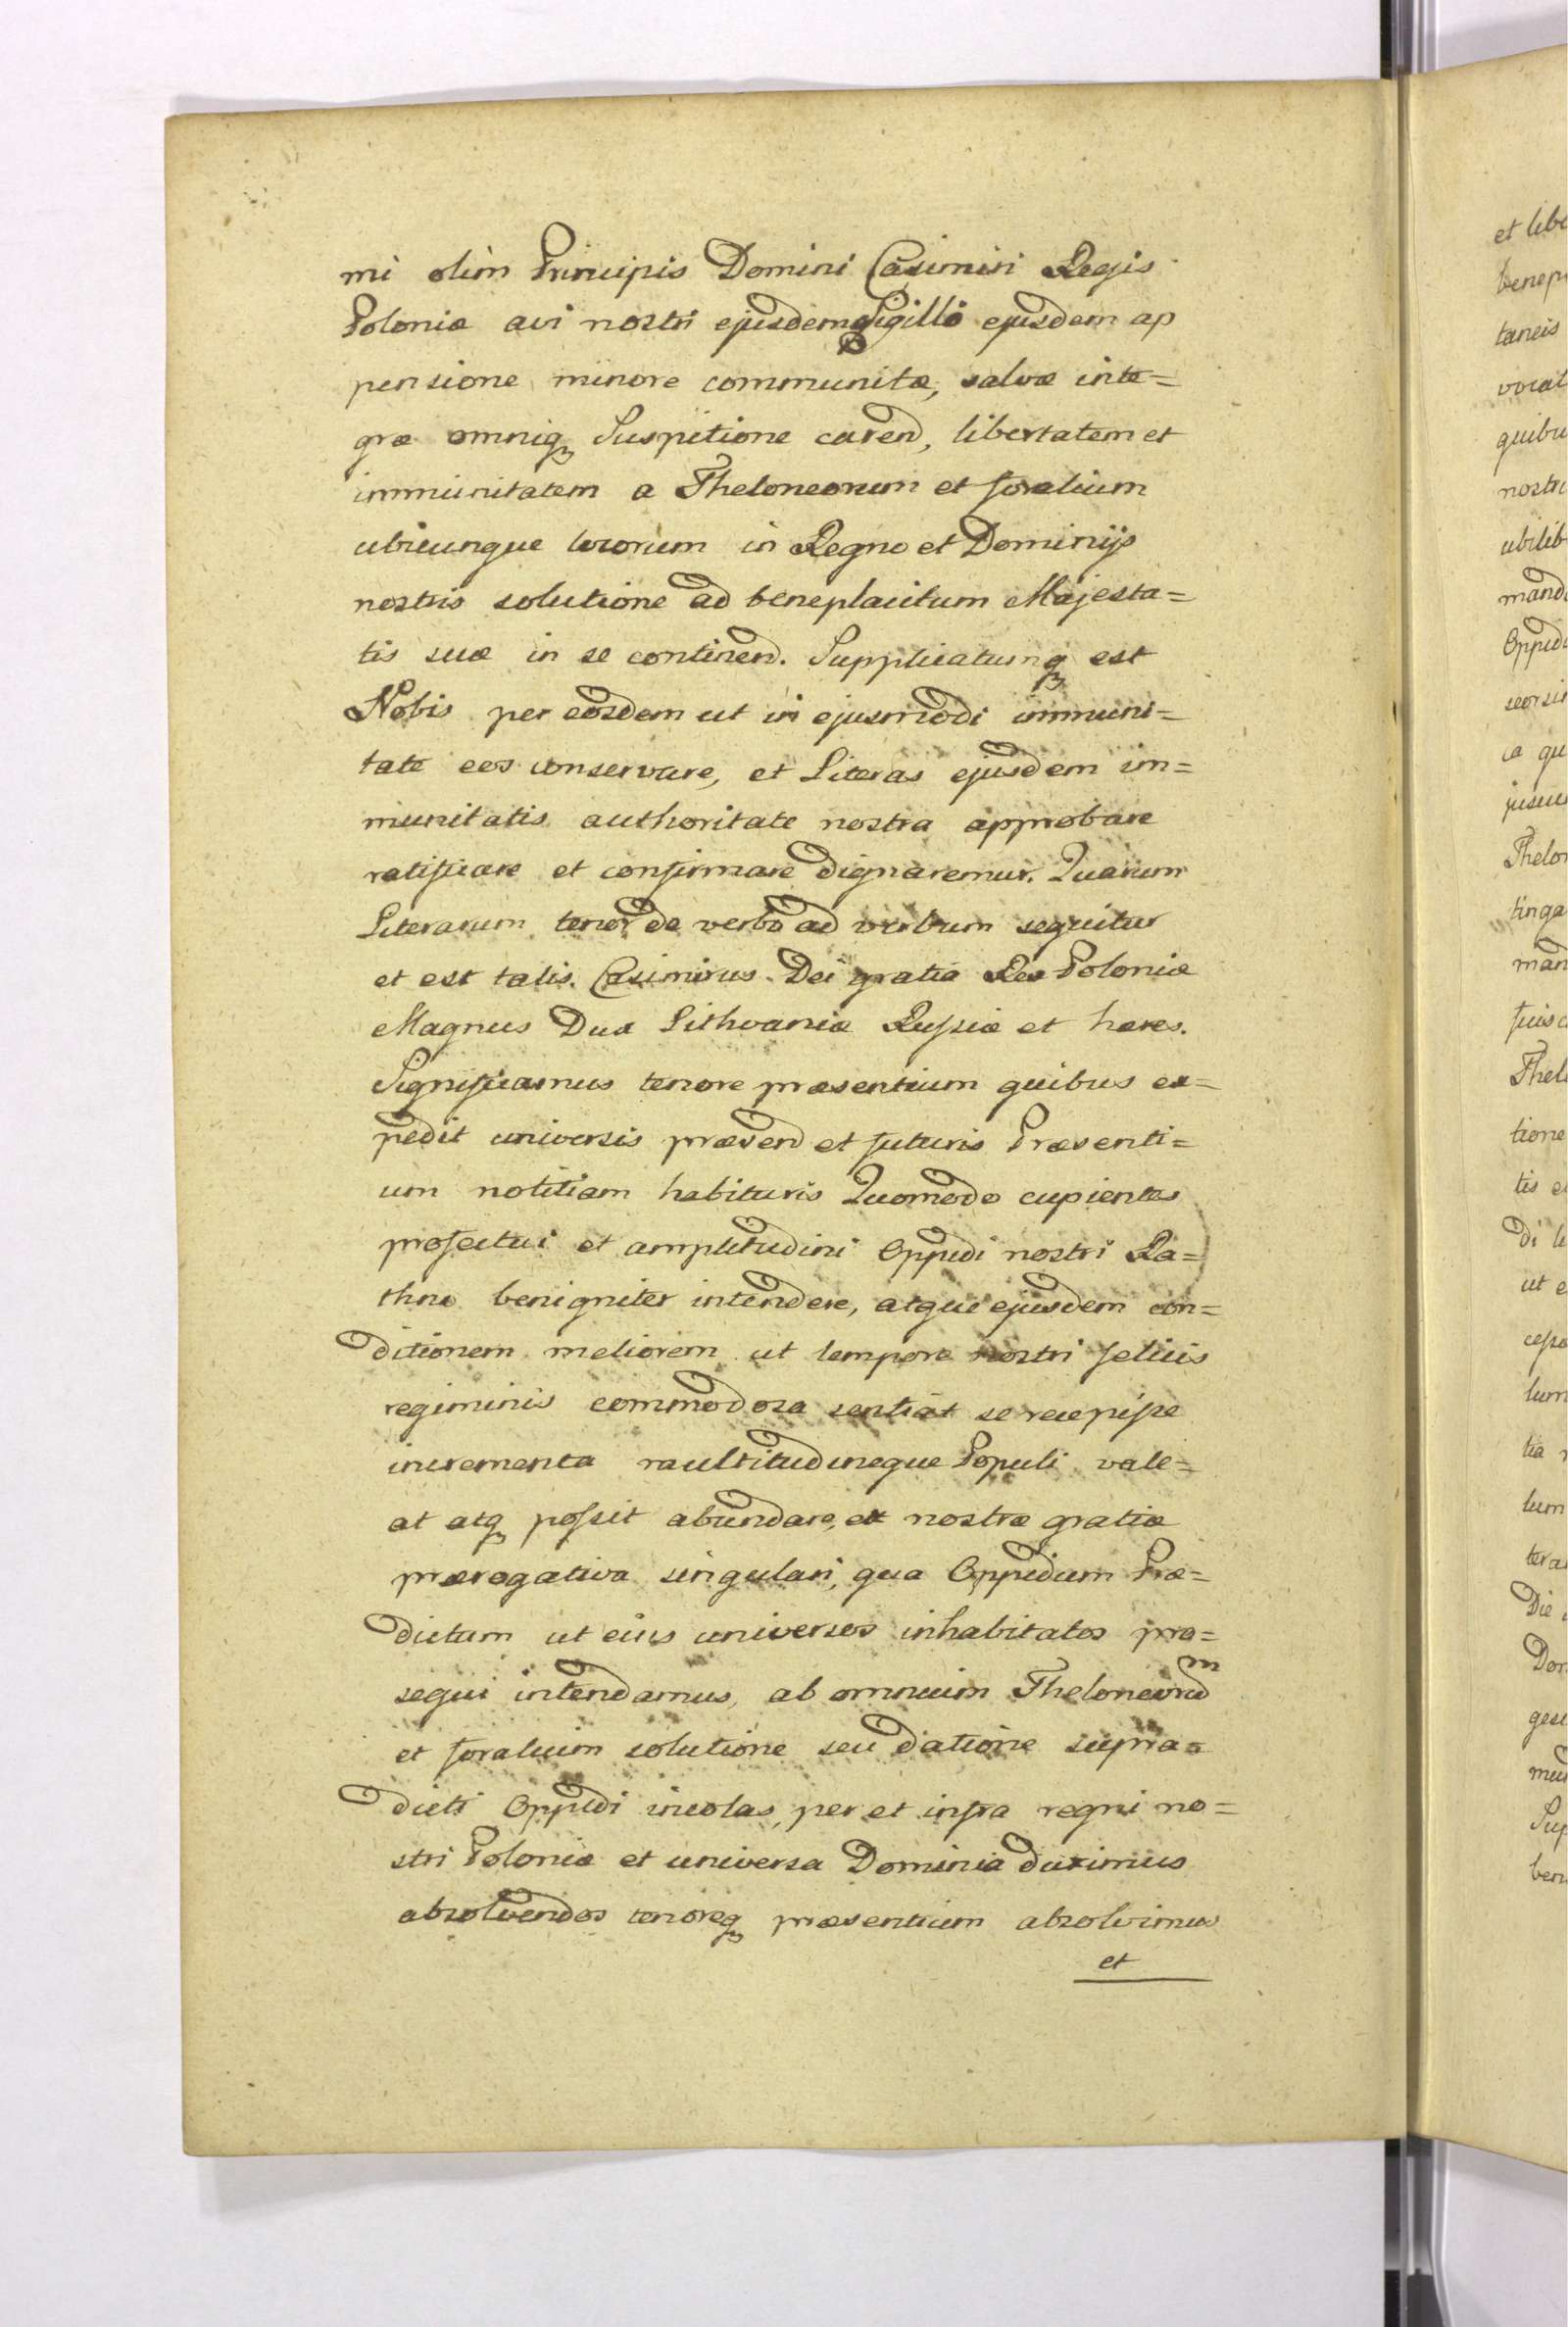 mi olim Principis Domini Casimiri Regis
Poloniæ avi nostri ejusdemq Sigillo ejusdem ap
pensione minore communitæ, salvæ inte=
græ omniq Suspitione carend, libertatem et
immunitatem a Theloneorum et foralium
ubicunque locorum in Regno et Dominijs
nostris solutione ad beneplacitum Majesta=
tis suæ in se continen. Supplicatumq est
Nobis per eosdem ut in ejusmodi immuni=
tate eos conservare, et Literas ejusdem im=
munitatis authoritate nostra approbare
ratificare et confirmare dignaremur. Quarum
Literarum tenor de verbo ad verbum sequitur
et est talis. Casimirus Dei gratia Rex Poloniæ
Magnus Dux Lithvaniæ Russiæ et hæres.
Significamus tenore præsentium quibus ex=
pedit universis præsend et futuris Præsenti=
um notitiam habituris Quomodo cupientes
profectui et amplitudini Oppidi nostri Ra=
thno benigniter intendere, atque ejusdem con=
ditionem meliorem ut tempore nostri felicis
regiminis commodosa sentiat se recepisse
incrementa multitudineque Populi vale=
at atq possit abundare, ex nostræ gratiæ
prærogativa singulari, qua Oppidum Præ=
dictum ut eius universos inhabitatos pro=
sequi intendamus, ab omnium Theloneorum
et foralium solutione seu datione supra=
dicti Oppidi incolas, per et infra regni no=
stri Poloniæ et universa Dominia duximus
absolvendos tenoreq præsentium absolvimus
et
et libe
benep
taneis
vocat
quibu
nostri
ubilib
mand
Oppid
seorsi
ca qu
juscu
Thelo
tinga
man
suis c
Thel
tione
tis e
di l
ut e
cessa
lum
tia
lum
tera
Die
Don
ges
mu
Sup
ben